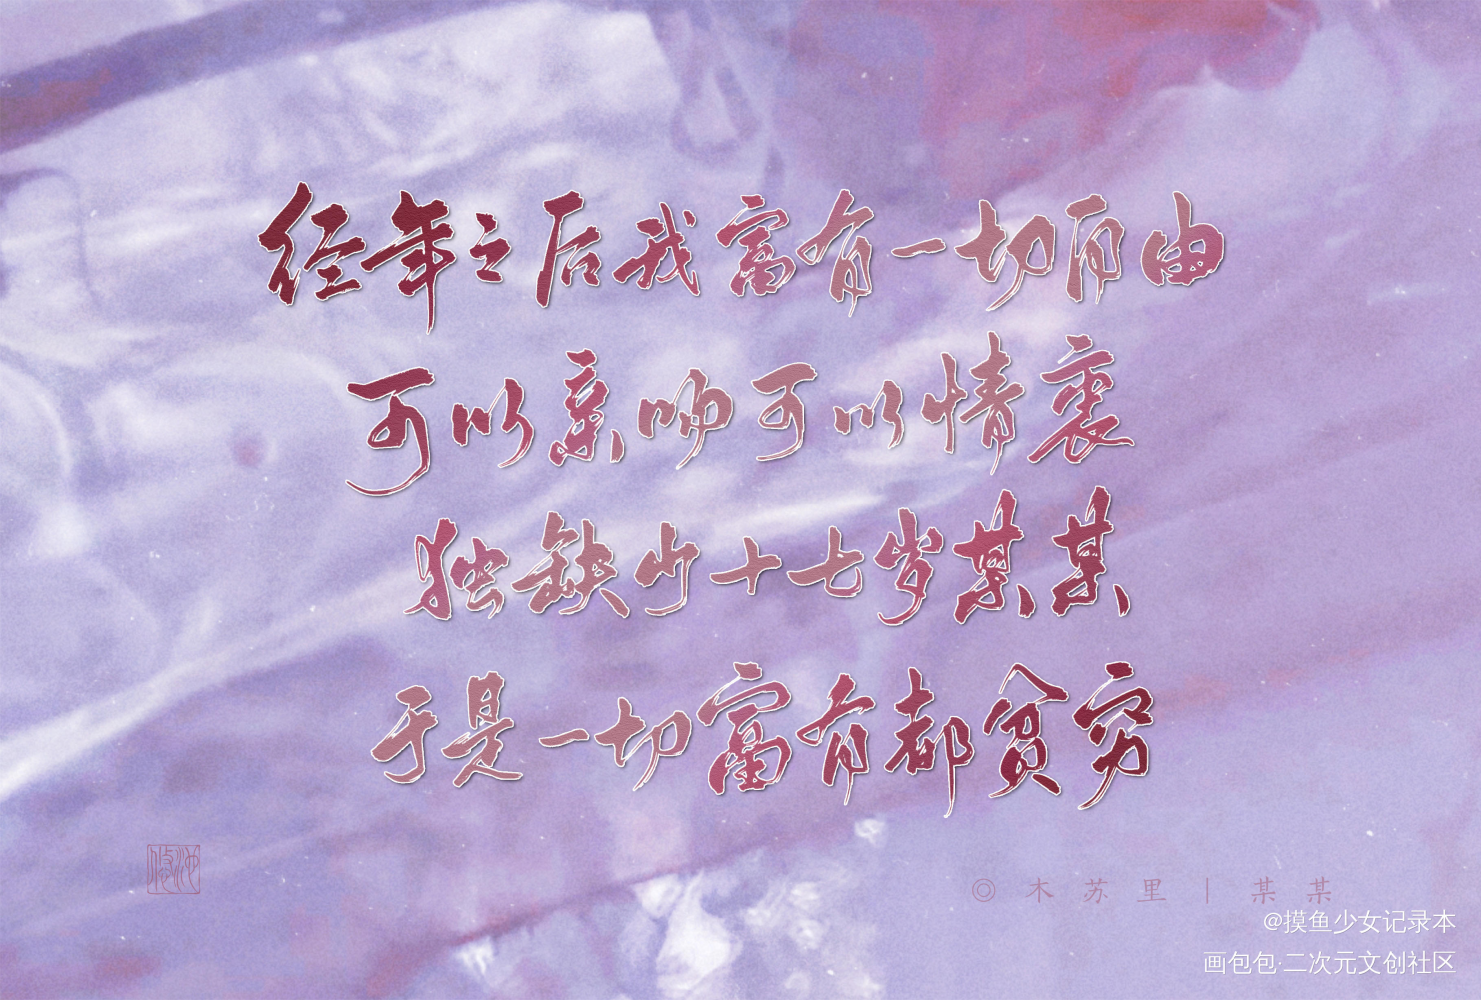 经年之后我富有一切自由
可以亲吻可以情衷
独缺少十七岁某某
于是一切富有都贫穷
悠池
◎木苏里|某某
@摸鱼少女记录本
画包包·二次元文创社区